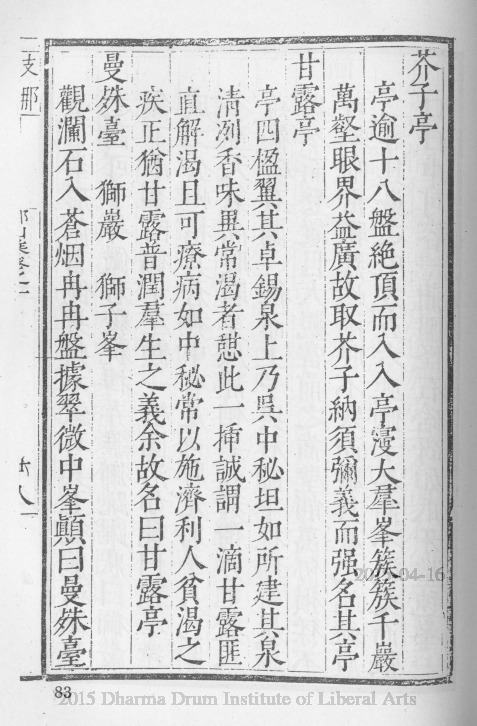 芥子亭
亭逾十八盤絶頂而入入亭寬大羣峯簇簇千巖
萬壑眼界益廣故取芥子納須彌義而强名其亭
甘露亭
亭四楹翼其卓錫泉上乃吳中秘坦如所建其泉
清冽香味異常渴者憇此一掬誠謂一滴甘露匪
直解渴且可療病如中秘常以施濟利人貧渴之
疾正猶甘露普潤羣生之義余故名曰甘露亭
曼殊臺 獅巖 獅子峯
觀瀾石入蒼烟冉冉盤據翠微中峯顚曰曼殊臺
支那
83
2015 Dharma Drum Institute of Liberal Arts